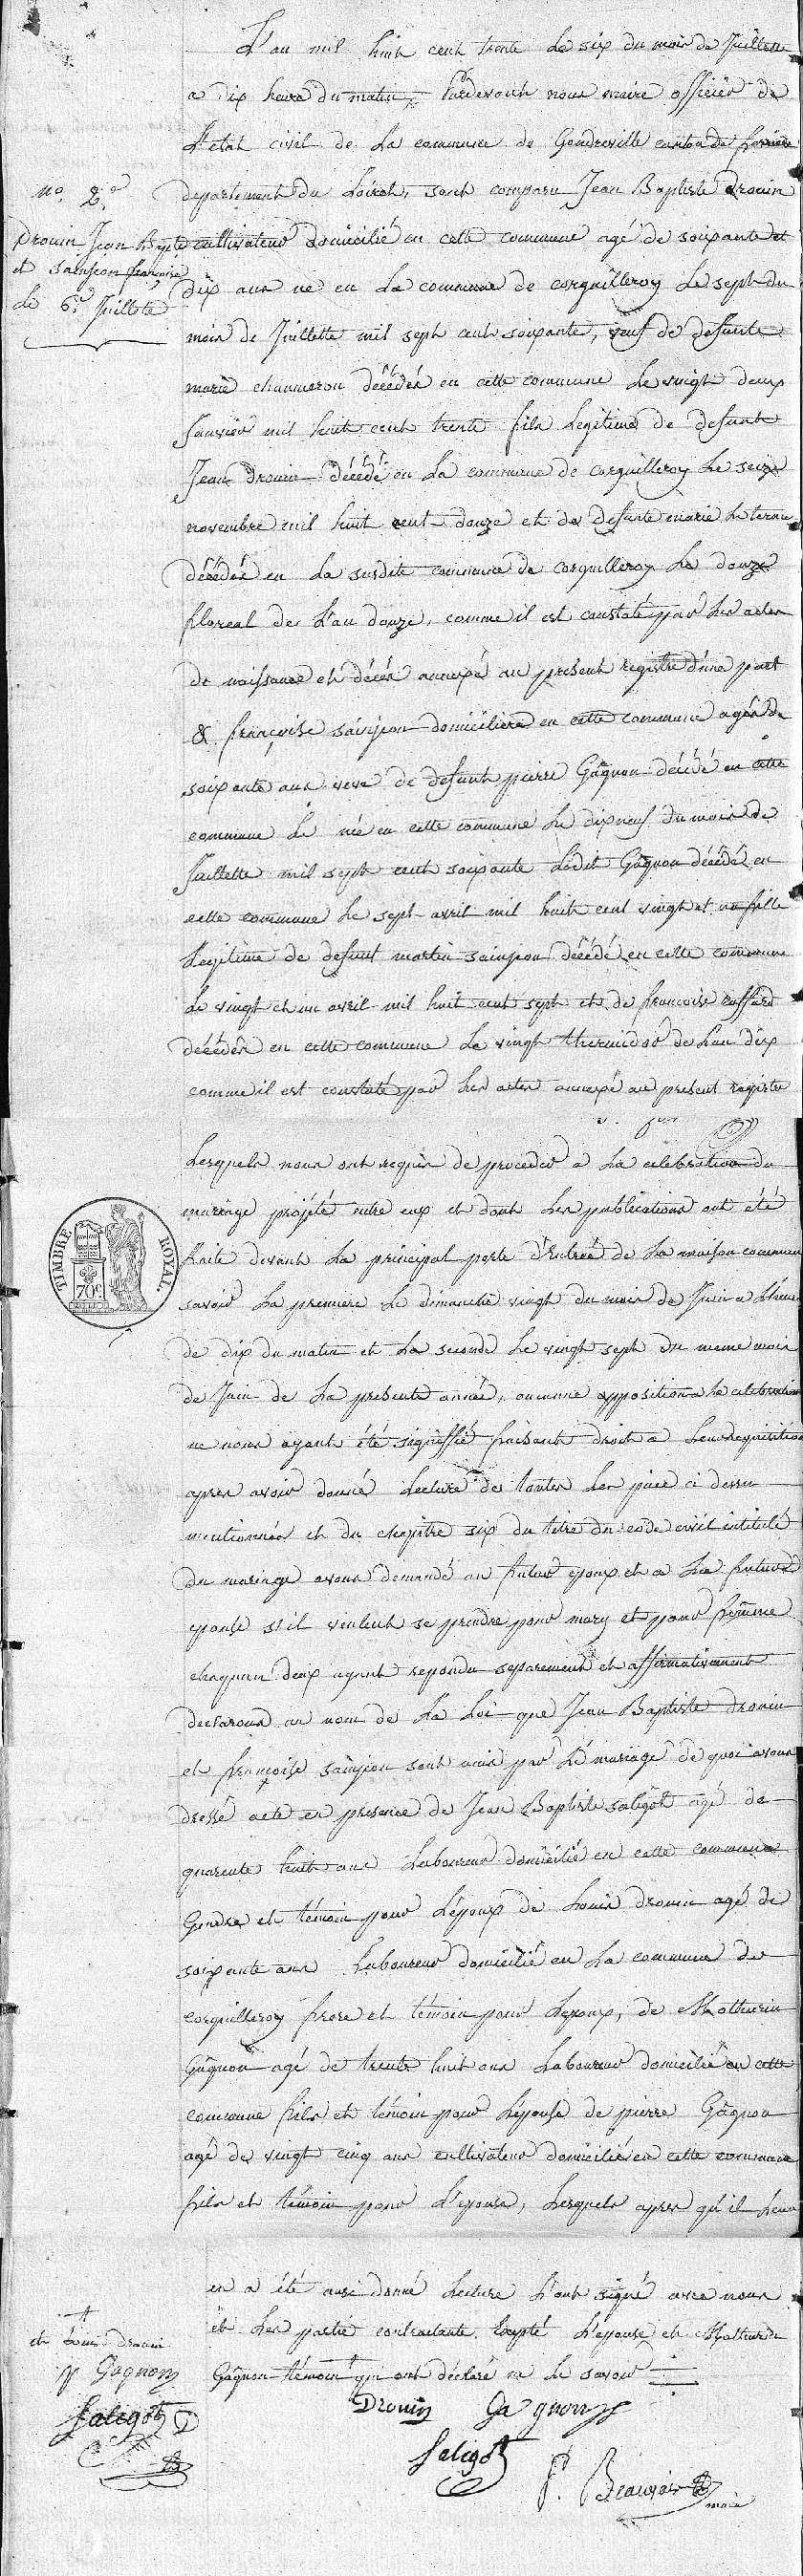 L'an mil huit cent trente Le six du mois de Juillette
a dix heure du matin, Pardevant nous maire officier de
L'etat civil de La commune de Gondreville canton de ferriere
departement du Loiret, sont comparu Jean Baptiste Drouin
cultivateur domicilié en cette commune agé de soixante et
dix ans né en La commune de corquilleroy Le sept du
mois de Juillette mil sept cent soixante, veuf de defunte
marie chaumeron décédée en cette commune Le vingt deux
Janvier mil huit cent trente fils Legitime de defunt
Jean Drouin décédé en La commune de corquilleroy Le seize
novembre mil huit cent douze et de defunte marie
décédée en La susdite commune de corquilleroy Le douze
floreal de L'an douze, comme il est constaté par Les actes
de naissance et décés annexé au present registre d'une part
& françoise sainjon domiciliere en cette commune agée de
soixante ans veve de defunt pierre Gagnon décédé en cette
commune Le née en cette commune Le dixneuf du mois de
Juillette mil sept cent soixante Ledit Gagnon décédé en
cette commune Le sept avril mil huit cent vingt et un fille
Legitime de defunt martin sainjon décédé en cette commune
Le vingt et un avril mil huit cent sept et de francoise
décédée en cette commune Le vingt thermidor de L'an dix
comme il est constaté par Les actes annexé au present registre
Lesquels nous ont requis de proceder a La celebration du
mariage projeté entre eux et dont Les publications ont été
faite devant La principal porte d'Entreé de La maison commune
savoir La premiere Le dimanche vingt du mois de Juin a L'heure
de dix du matin et La seconde Le vingt sept du meme mois
de Juin de La presente année, aucunne opposition a La celebration
ne nous ayant été signiffié faisant droit a Leur requisition
apres avoir donné Lecture de toutes Les piece ci dessu
mentionnées et du chapitre six du titre du code civil intitulé
du mariage avons demandé au futur epoux et a La future
epouse s'il veulent se prendre pour mary et pour femme
chaquun deux ayant repondu separement et affirmativement
declarons au nom de La Loi que Jean Baptiste drouin
et françoise sainjon sont unis par Le mariage de quoi avons
dressé acte en presence de Jean Baptiste saligot agé de
quarente huit ans Laboureur domicilié en cette commune
Gendre et témoin pour L'époux de Louis drouin agé de
soixante ans Laboureur domicilié en La commune de
corquilleroy frere et témoin pour Lepoux, de Mathurin
Gagnon agé de trente huit ans Laboureur domicilié en cette
commune fils et témoin pour L'épouse de pierre Gagnon
agé de vingt cinq ans cultivateur domicilié en cette commune
fils et témoin pour L'epouse, Lesquels apres qu'il Leur
en a été aussi donné Lecture L'ont signé avec nous
et Les partie contractante Excepté L'epouse et Mathurin
Gagnon témoin qui ont déclaré ne Le savoir
Drouin Gagnon
Saligot
P. Beauvais maire
No. 2.e
Drouin Jean Bapte
et sainjon françoise
Le 6.e Juillete
TIMBRE ROYAL.
70c
et Louis drouin
p Gagnon
Saligot